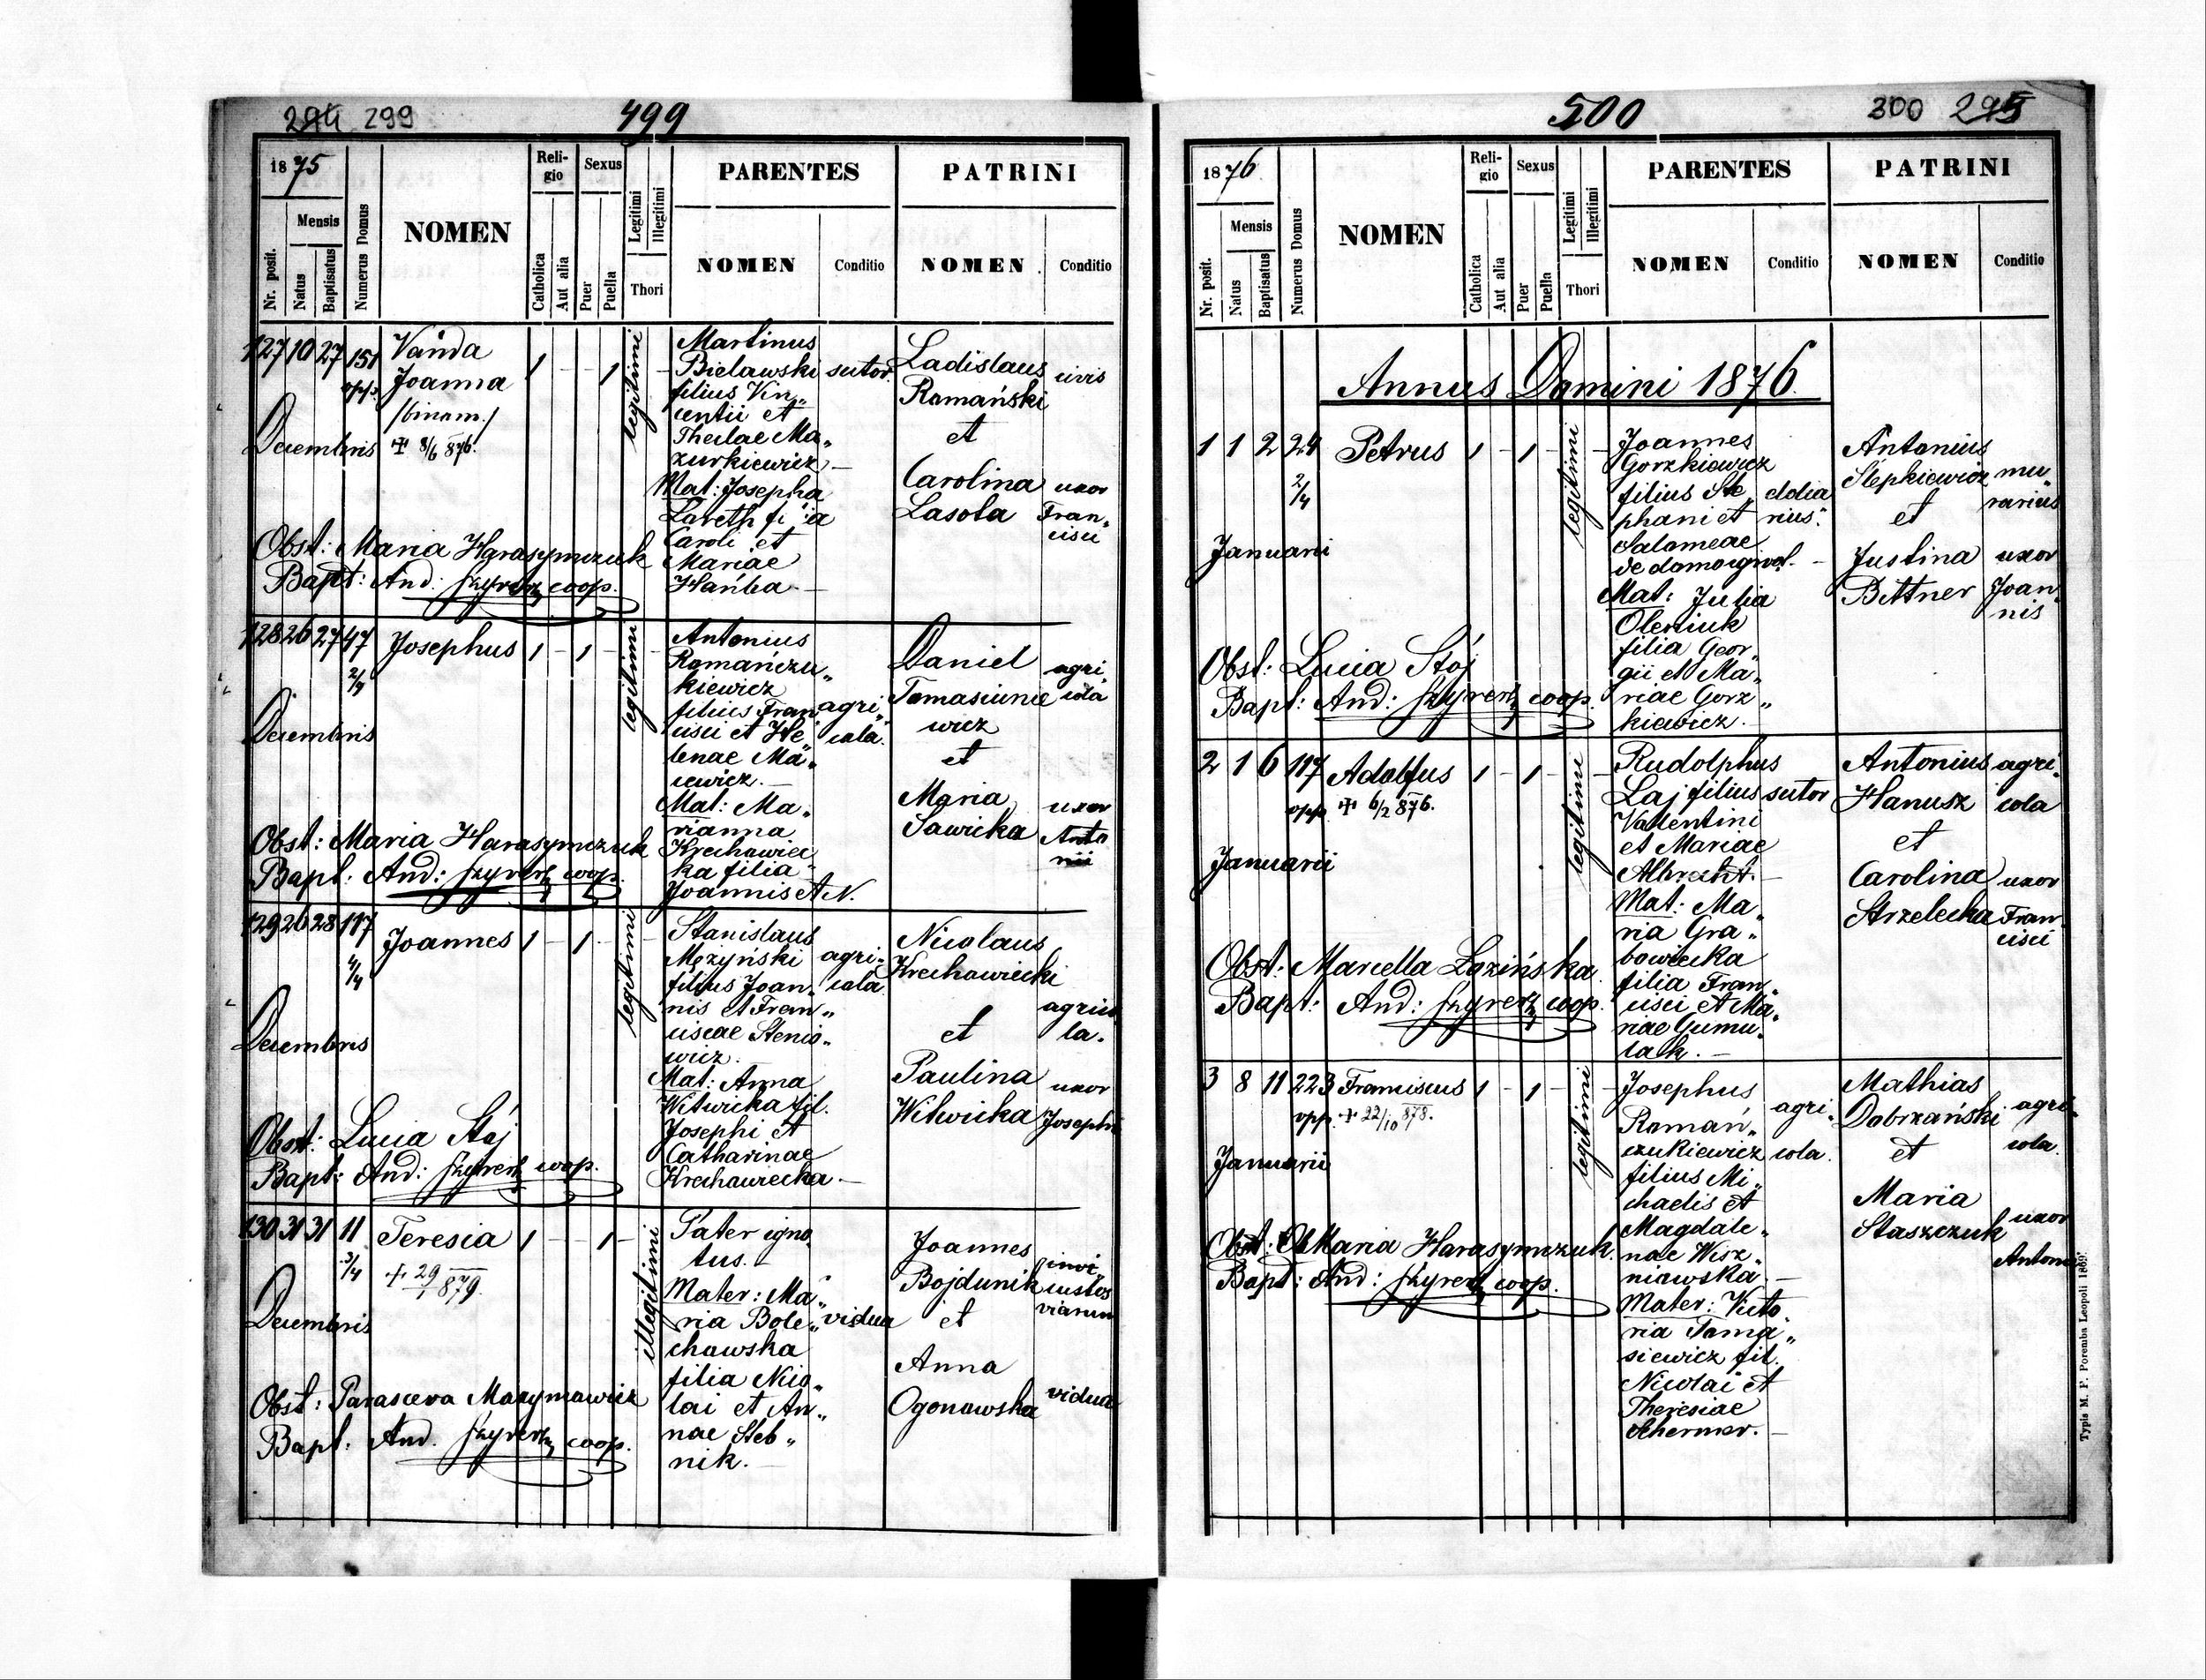 294 299
499
1875
Nr. posit.
Mensis
Natus
Baptisatus
Numerus Domus
NOMEN
Reli-
gio
Catholica
Aut alia
Sexus
Puer
Puella
Legitimi
Illegitimi
Thori
PARENTES
NOMEN
Conditio
PATRINI
NOMEN
Conditio
127 10 27 151
opp.
Decembris
Vanda
Joanna
/binom./
+ 8/6 876.
1 - - 1
legitimi
Martinus
Bielawski
filius Vin„
centii et
Theclae Ma„
zurkiewicz
Mat: Josepha
Lareth
Caroli et
Mariae
Hańba
sutor
Ladislaus
Romański
et
Carolina
Lasota
civis
uxor
Fran„
cisci
Obst: Maria Harasymczuk
Bapt: And: Szyretz coop.
128 26 27 47
2/4
Decembris
Josephus
1 - 1 -
legitimi
Antonius
Romańczu„
kiewicz
filius Fran„
cisci et He„
lenae Ma„
cewicz.
Mat: Ma„
rianna
Krechowiec
ka filia
Joannis et N.
agri„
cola.
Daniel
Tomasiunie
wicz
et
Maria
Sawicka
agri„
cola
uxor
Anto
nii
Obst: Maria Harasymczuk
Bapt: And: Szyretz coop.
129 26 28 117
4/4
Decembris
Joannes
1 - 1 -
legitimi
Stanislaus
Mężyński
filius Joan„
nis et Fran„
ciscae Stenio„
wicz.
Mat: Anna
Witwicka fil.
Josephi et
Catharinae
Krechowiecka
agri„
cola
Nicolaus
Krechowiecki
et
Paulina
Witwicka
agrico
la.
uxor
Josephi
Obst: Lucia Stój
Bapt: And: Szyretz coop.
130 31 31 11
3/4
Decembris
Teresia
1 - - 1 -
illegitimi
Pater igno
tus.
Mater: Ma„
ria Bole„
chowska
filia Nico„
lai et An„
nae Steb„
nik.
vidua
Joannes
Bojdunik
et
Anna
Ogonowska
custos
viarum
vidua
Obst: Parasceva Maxymowicz
Bapt: And. Szyretz coop.
500
300 295
1876
Nr. posit.
Mensis
Natus
Baptisatus
Numerus Domus
NOMEN
Reli-
gio
Catholica
Aut alia
Sexus
Puer
Puella
Legitimi
Illegitimi
Thori
PARENTES
NOMEN
Conditio
PATRINI
NOMEN
Conditio
Annus Domini 1876.
1 1 2 24
2/4
Januarii
Petrus
1 - 1 -
legitimi
Joannes
Gorzkiewicz
filius Ste„
phani et
Salomeae
Mat: Julia
Oleniuk
filia Geor„
gii et Ma„
riae Gorz„
kiewicz.
Antonius
Stepkiewicz
et
Justina
Bittner
mu„
rarius
uxor
Joan„
nis
Obst: Lucia Stój
Bapt: And: Szyretz coop.
2 1 6 117
opp.
Januarii
Adolfus
+ 6/2 876.
1 - 1 -
legitimi
Rudolphus
Laj filius
Valentini
et Mariae
Albrecht.
Mat: Ma„
ria Gra„
bowiecka
filia Fran„
cisci et Ma„
riae Gumu„
lak.
sutor
Antonius
Hanusz
et
Carolina
Strzelecka
agri„
cola
uxor
Fran„
cisci
Obst: Marcella Łozińska
Bapt: And: Szyretz coop.
3 8 11 223
opp.
Januarii
Franciscus
+ 22/10 878.
1 - 1 -
legitimi
Josephus
Romań„
czukiewicz
filius Mi„
chaelis et
Magdale„
nae Wisz„
niawska
Mater: Victo„
ria Toma„
siewicz fil.
Nicolai et
Theresiae
Schermer.
agri„
cola.
Mathias
Dobrzański
et
Maria
Staszczuk
agri„
cola.
uxor
Antonii
Obst: Maria Harasymczuk.
Bapt: And: Szyretz coop.
Typis M. F. Poremba Leopoli 1869.